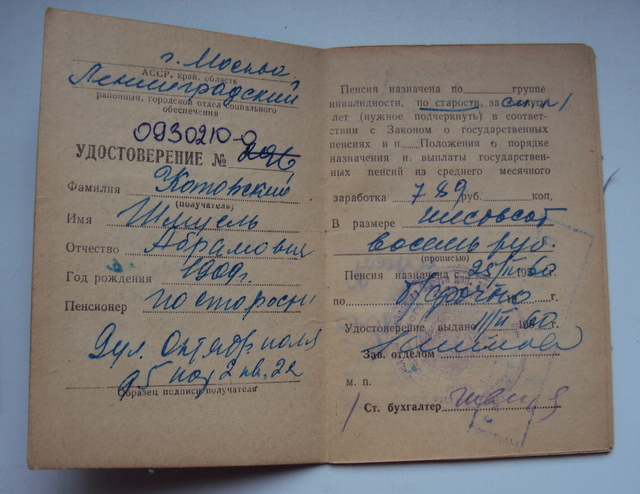 г. Москва
АССР, край, область
Ленинградский
районный, городской отдел социального
обеспечения
0930210-0
УДОСТОВЕРЕНИЕ №
Фамилия Котовский
(получателя)
Имя
Отчество Абрамович
Год рождения 1909г.
Пенсионер по старости
ул. Октябр. поля
Образец подписи получателя
Пенсия назначена по группе
инвалидности, по старости, за выслугу
лет (нужное подчеркнуть) в соответ-
ствии с Законом о государственных
пенсиях и п. Положения о порядке
назначения и выплаты государствен-
ных пенсий из среднего месячного
заработка 789 руб. коп,
В размере шестьсот
восемь руб.
(прописью)
Пенсия назначена с 25/III 60
по бессрочно 19 г.
Удостоверение выдано 60 г.
Зав. отделом
м. п.
Ст. бухгалтер